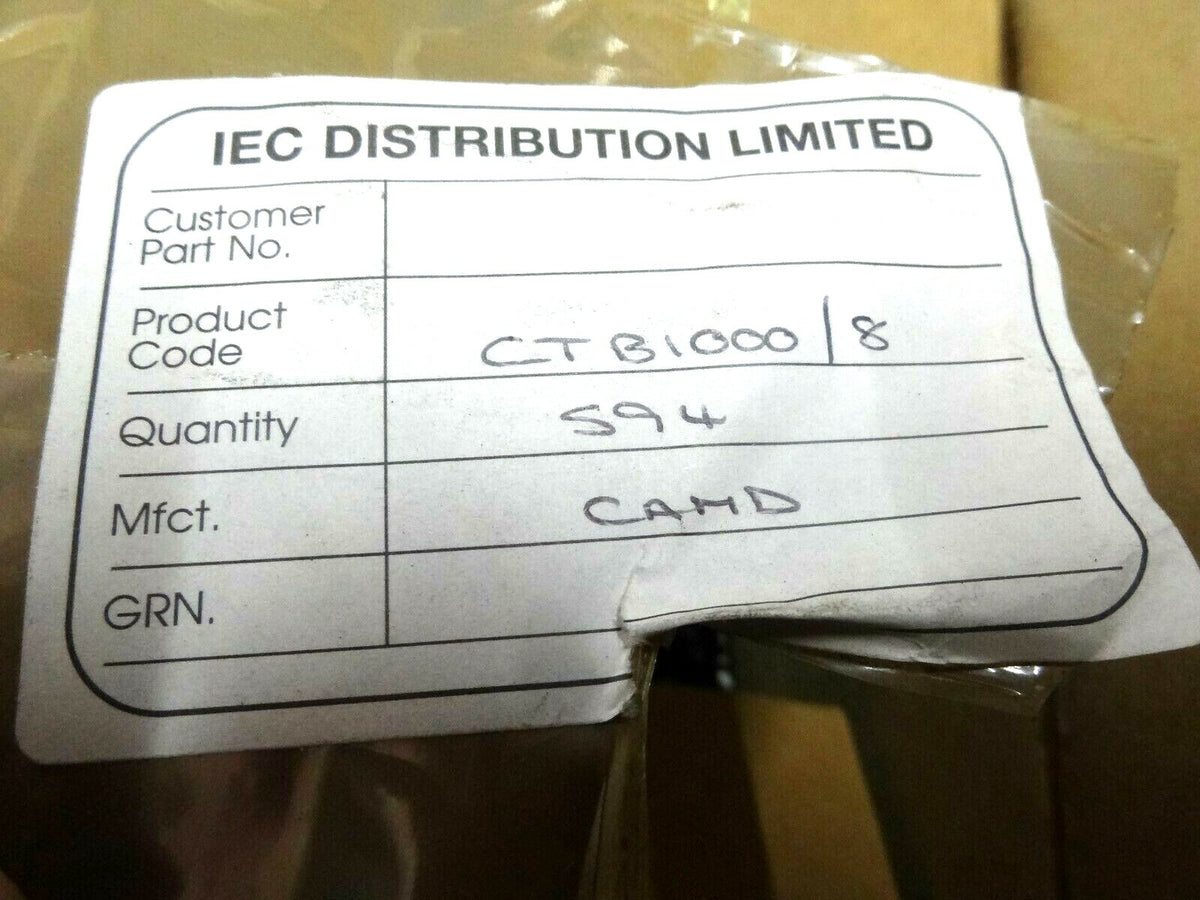 IEC DISTRIBUTION LIMITED
Customer
Part No.
Product
Code
CTB1000/8
Quantity
594
Mfct.
CAMD
GRN.